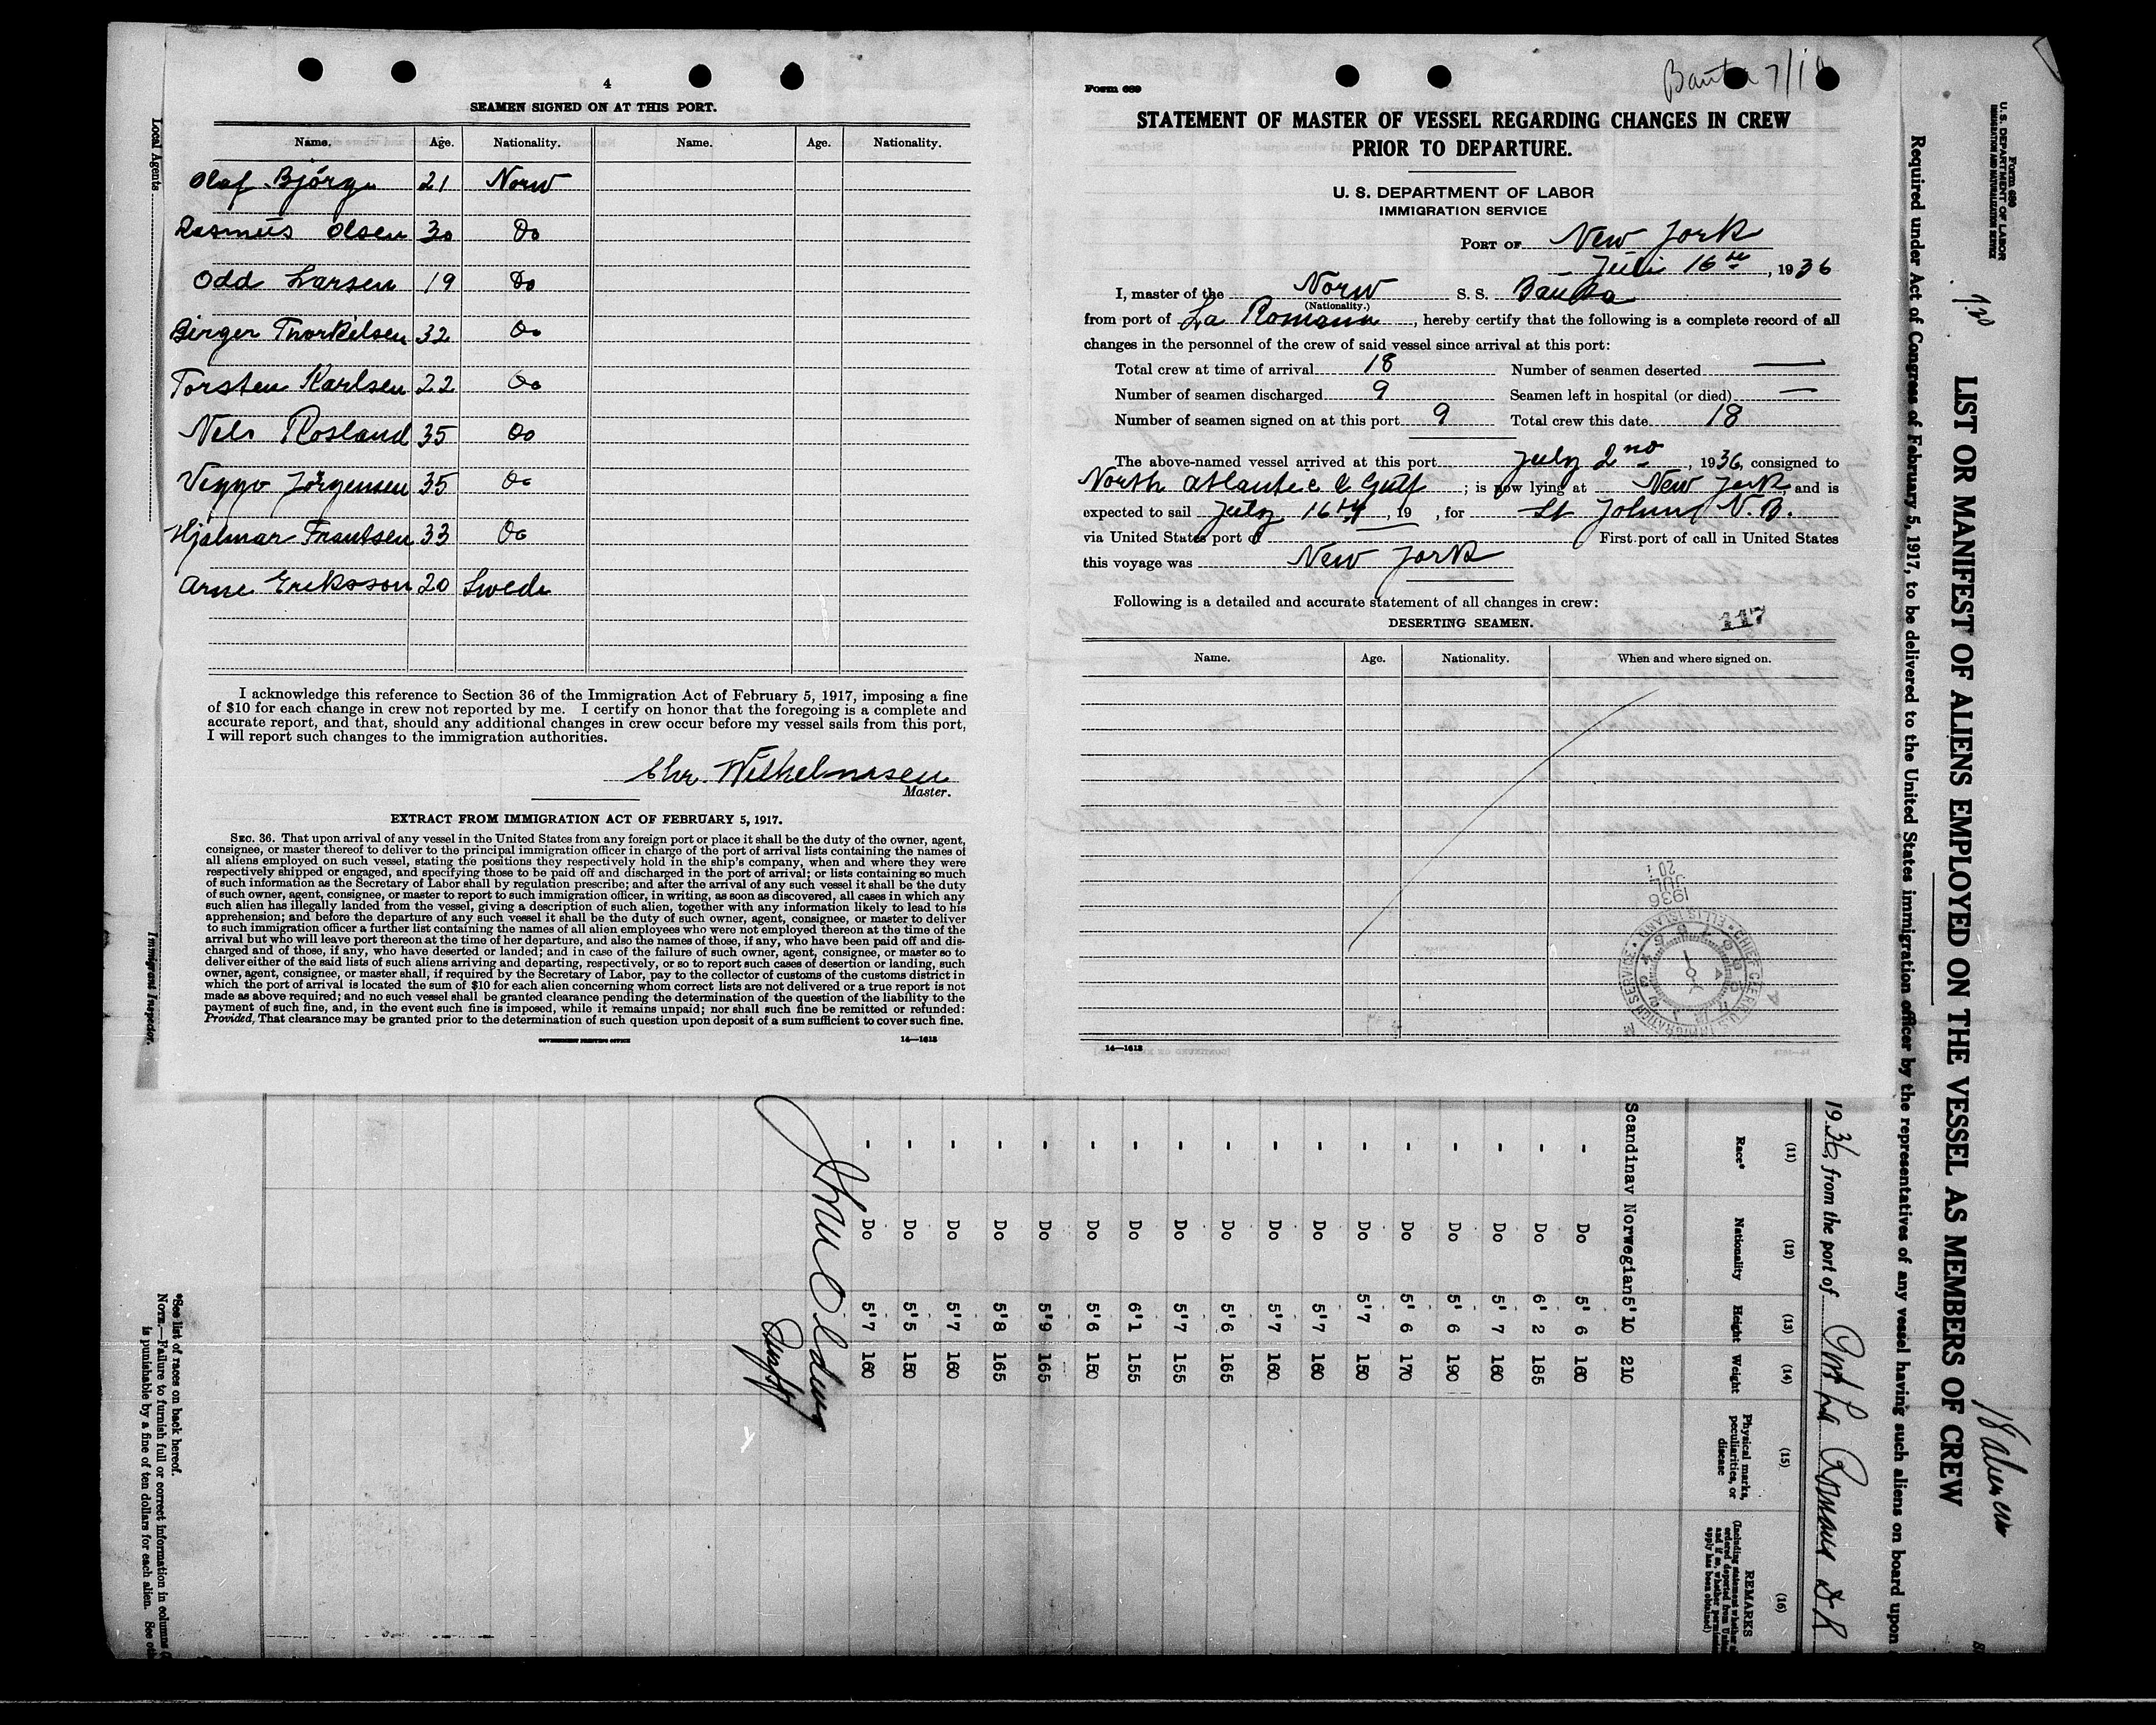 4
SEAMEN SIGNED ON AT THIS PORT.
Name. Age. Nationality. Name. Age. Nationality.
Olaf Bjørge 21 Norw
Rasmus Olsen 30 Do
Odd Larsen 19 Do
Birger Thorkilsen 32 Do
Torsten Karlsen 22 Do
Nels Rosland 35 Do
Viggo Jörgensen 35 Do
Hjalmar Frantsen 33 Do
Arne Eriksson 20 Swede
I acknowledge this reference to Section 36 of the Immigration Act of February 5, 1917, imposing a fine
of $10 for each change in crew not reported by me. I certify on honor that the foregoing is a complete and
accurate report, and that, should any additional changes in crew occur before my vessel sails from this port,
I will report such changes to the immigration authorities.
Chr. Wilhelmsen
Master.
EXTRACT FROM IMMIGRATION ACT OF FEBRUARY 5, 1917.
SEC. 36. That upon arrival of any vessel in the United States from any foreign port or place it shall be the duty of the owner, agent,
consignee, or master thereof to deliver to the principal immigration officer in charge of the port of arrival lists containing the names of
all aliens employed on such vessel, stating the positions they respectively hold in the ship's company, when and where they were
respectively shipped or engaged, and specifying those to be paid off and discharged in the port of arrival; or lists containing so much
of such information as the Secretary of Labor shall by regulation prescribe; and after the arrival of any such vessel it shall be the duty
of such owner, agent, consignee, or master to report to such immigration officer, in writing, as soon as discovered, all cases in which any
such alien has illegally landed from the vessel, giving a description of such alien, together with any information likely to lead to his
apprehension; and before the departure of any such vessel it shall be the duty of such owner, agent, consignee, or master to deliver
to such immigration officer a further list containing the names of all alien employees who were not employed thereon at the time of the
arrival but who will leave port thereon at the time of her departure, and also the names of those, if any, who have been paid off and dis-
charged and of those, if any, who have deserted or landed; and in case of the failure of such owner, agent, consignee, or master so to
deliver either of the said lists of such aliens arriving and departing, respectively, or so to report such cases of desertion or landing, such
owner, agent, consignee, or master shall, if required by the Secretary of Labor, pay to the collector of customs of the customs district in
which the port of arrival is located the sum of $10 for each alien concerning whom correct lists are not delivered or a true report is not
made as above required; and no such vessel shall be granted clearance pending the determination of the question of the liability to the
payment of such fine, and, in the event such fine is imposed, while it remains unpaid; nor shall such fine be remitted or refunded:
Provided, That clearance may be granted prior to the determination of such question upon deposit of a sum sufficient to cover such fine.
GOVERNMENT PRINTING OFFICE 14—1613
Local Agents
Immigrant Inspector.
Form 689
STATEMENT OF MASTER OF VESSEL REGARDING CHANGES IN CREW
PRIOR TO DEPARTURE.
U. S. DEPARTMENT OF LABOR
IMMIGRATION SERVICE
PORT OF New York
Juli 16th, 1936
I, master of the Norw S. S. Bauta
(Nationality.)
from port of La Romana, hereby certify that the following is a complete record of all
changes in the personnel of the crew of said vessel since arrival at this port:
Total crew at time of arrival 18 Number of seamen deserted —
Number of seamen discharged 9 Seamen left in hospital (or died) —
Number of seamen signed on at this port 9 Total crew this date 18
The above-named vessel arrived at this port July 2nd, 1936, consigned to
North Atlantic & Gulf; is now lying at New York, and is
expected to sail July 16th, 19 , for St Johns N. B.
via United States port of First port of call in United States
this voyage was New York
Following is a detailed and accurate statement of all changes in crew:
117
DESERTING SEAMEN.
Name. Age. Nationality. When and where signed on.
1936
JUL
20
CHIEF CLERK U.S. IMMIGRATION SERVICE ELLIS ISLAND
14—1613
Form 689
U. S. DEPARTMENT OF LABOR
IMMIGRATION AND NATURALIZATION SERVICE
LIST OR MANIFEST OF ALIENS EMPLOYED ON THE VESSEL AS MEMBERS OF CREW
Required under Act of Congress of February 5, 1917, to be delivered to the United States immigration officer by the representatives of any vessel having such aliens on board upon
1936, from the port of La Romana D.R
(11) (12) (13) (14) (15) (16)
Race* Nationality Height Weight Physical marks, peculiarities, or disease REMARKS
Scandinav Norwegian 5'10 210
- Do 5' 6 160
- Do 6' 2 185
- Do 5' 7 160
- Do 5' 6 190
- Do 5' 6 170
- Do 5'7 150
- Do 5'7 160
- Do 5'7 160
- Do 5'6 165
- Do 5'7 155
- Do 6'1 155
- Do 5'6 150
- Do 5'9 165
- Do 5'8 165
- Do 5'7 160
- Do 5'5 150
- Do 5'7 160
*See list of races on back hereof.
NOTE.—Failure to furnish full or correct information in columns
is punishable by a fine of ten dollars for each alien. See